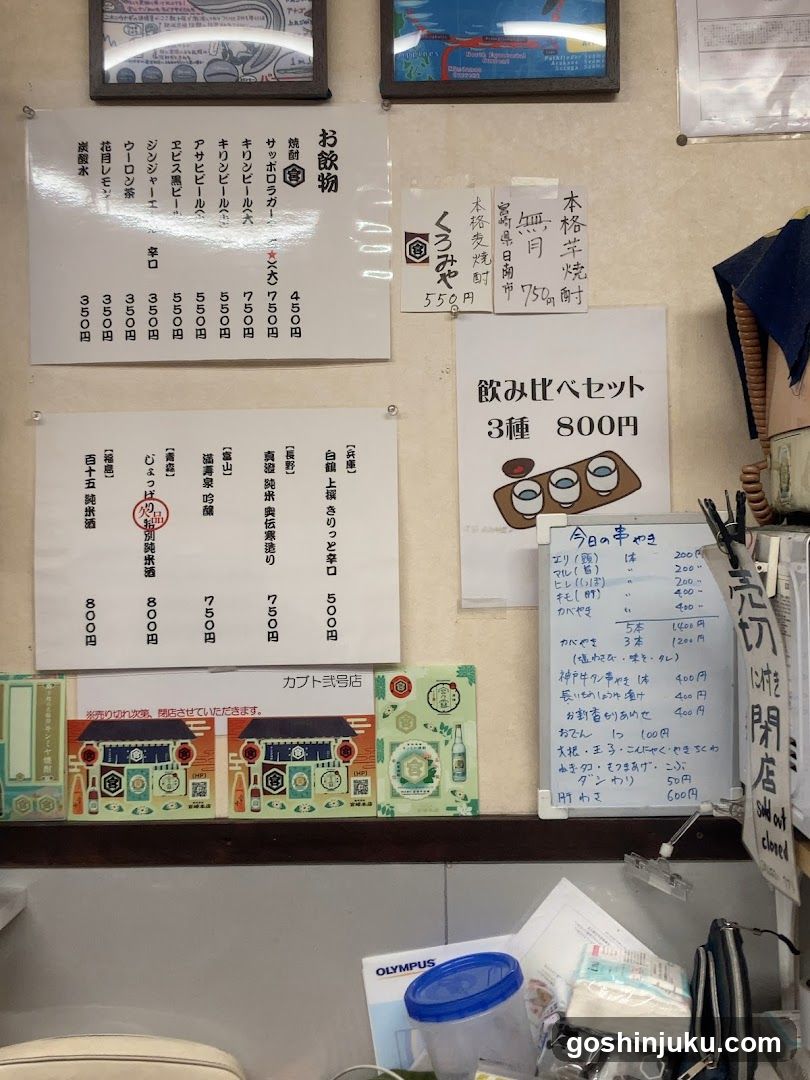 お飲物
焼酎 宮 450円
サッポロラガー ★(大) 750円
キリンビール(大 750円
キリンビール 550円
アサヒビール 550円
ヱビス黒ビール 550円
ジンジャーエール 辛口 350円
ウーロン茶 350円
花月レモン 350円
炭酸水 350円
本格芋焼酎
無月
宮崎県日南市
750円
本格麦焼酎
くろみや
宮
550円
飲み比べセット
3種 800円
【兵庫】
白鶴 上撰 きりっと辛口 500円
【長野】
真澄 純米 奥伝寒造り 750円
【富山】
満寿泉 吟醸 750円
【青森】
じょっぱり 特別純米酒 800円
欠品
【福島】
百十五 純米酒 800円
カブト弐号店
※売り切れ次第、閉店させていただきます。
キンミヤ焼酎
[HP]
宮崎本店
[HP]
宮崎本店
今日の串やき
エリ(頭) 1本 200円
マル(首) 〃 200〃
ヒレ(しっぽ) 〃 200〃
キモ(肝) 〃 400〃
カベやき 〃 400〃
5本 1400円
カベやき 3本 1200円
(塩わさび・味そ・タレ)
神戸牛タン串やき 1本 400円
長いものしょうゆ漬け 400円
お新香もりあわせ 400円
おでん 1つ 100円
大根・玉子・こんにゃく・やきちくわ
ねぎ・タコ・さつまあげ・こぶ
ダシわり 50円
肝わさ 600円
売切
に付き
閉店
Sold out
closed
OLYMPUS
North Equatorial
Current
goshinjuku.com